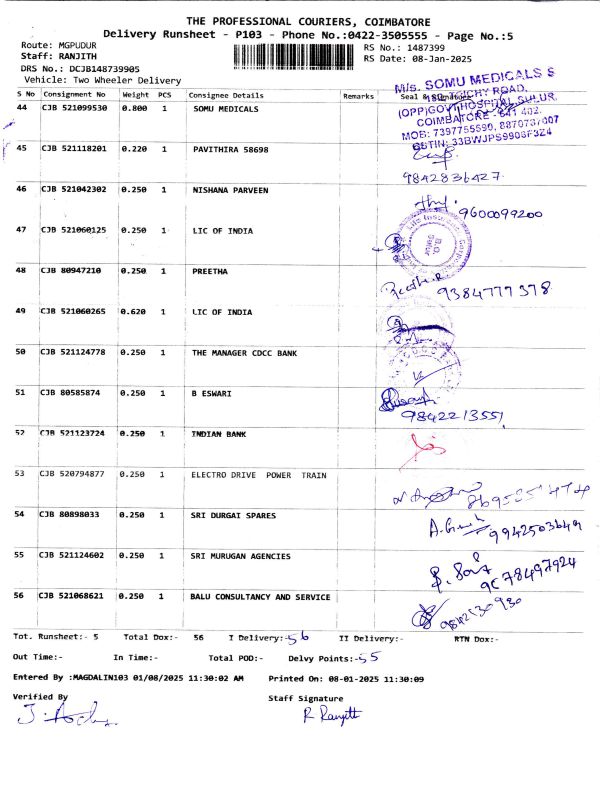 THE PROFESSIONAL COURIERS, COIMBATORE
Delivery Runsheet - P103 - Phone No.:0422-3505555 - Page No.:5
Route: MGPUDUR
RS No.: 1487399
Staff: RANJITH
RS Date: 08-Jan-2025
DRS No.: DCJB148739905
Vehicle: Two Wheeler Delivery
S No Consignment No Weight PCS Consignee Details Remarks Seal &
M/s. SOMU MEDICALS S
TRICHY ROAD,
(OPP)GOVT HOSPITAL, SULUR,
COIMBATORE - 641 402.
MOB: 7397755590, 8870737007
GSTIN: 33BWJPS9908F3Z4
44 CJB 521099530 0.800 1 SOMU MEDICALS
45 CJB 521118201 0.220 1 PAVITHIRA 58698
9842836427
46 CJB 521042302 0.250 1 NISHANA PARVEEN
9600099200
47 CJB 521060125 0.250 1 LIC OF INDIA
B.O. Sulur
48 CJB 80947210 0.250 1 PREETHA
Preetha.R 9384777378
49 CJB 521060265 0.620 1 LIC OF INDIA
50 CJB 521124778 0.250 1 THE MANAGER CDCC BANK
51 CJB 80585874 0.250 1 B ESWARI
9842213551
52 CJB 521123724 0.250 1 INDIAN BANK
53 CJB 520794877 0.250 1 ELECTRO DRIVE POWER TRAIN
54 CJB 80898033 0.250 1 SRI DURGAI SPARES
9942503649
55 CJB 521124602 0.250 1 SRI MURUGAN AGENCIES
9C78497924
56 CJB 521068621 0.250 1 BALU CONSULTANCY AND SERVICE
Tot. Runsheet:- 5 Total Dox:- 56 I Delivery:-56 II Delivery:- RTN Dox:-
Out Time:- In Time:- Total POD:- Delvy Points:-55
Entered By :MAGDALIN103 01/08/2025 11:30:02 AM Printed On: 08-01-2025 11:30:09
Verified By Staff Signature
R Ranjith